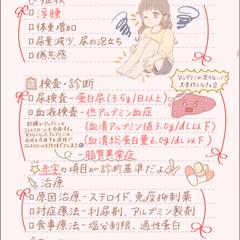 浮腫
体重増加
尿量減少、尿の泡立ち
倦怠感
検査・診断
尿検査-蛋白尿(3.5g/日以上)
血液検査-低アルブミン血症
(血清アルブミン値3.0g/dL以下)
(血清総蛋白量6.0g/dL以下)
-脂質異常症
赤字の項目が診断基準だよ
治療
原因治療-ステロイド、免疫抑制薬
対症療法-利尿剤、アルブミン製剤
食事療法-塩分制限、適性蛋白